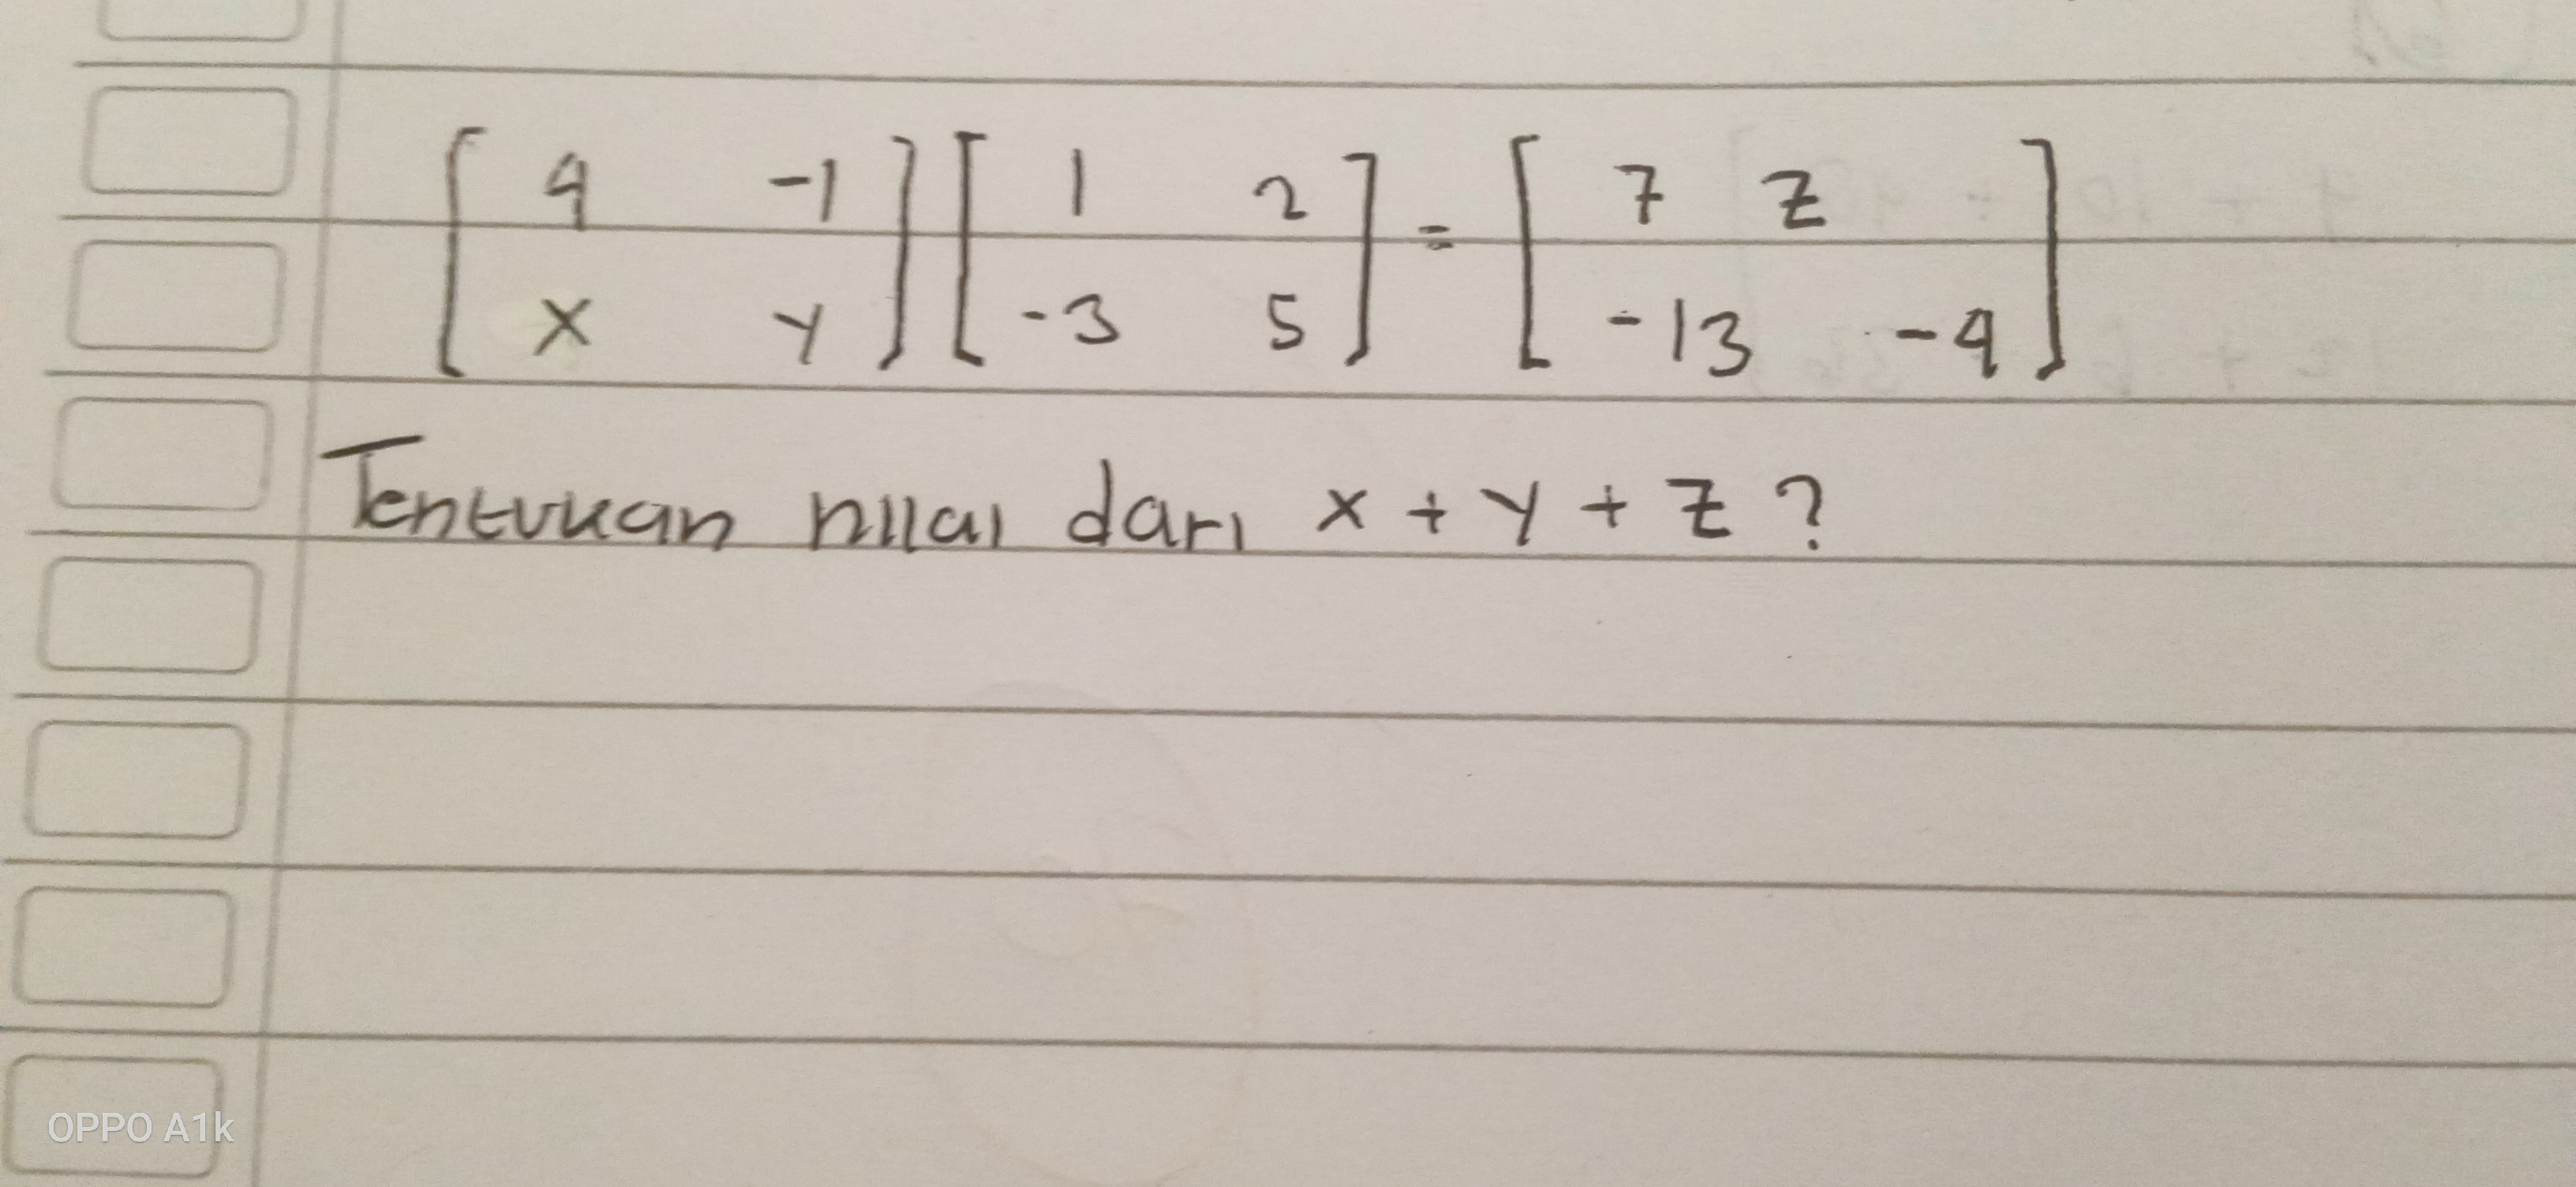 [ 4 -1 ] [ 1 2 ] = [ 7 z ]
[ x y ] [ -3 5 ] [ -13 -4 ]
Tentukan nilai dari x + y + z ?
OPPO A1k